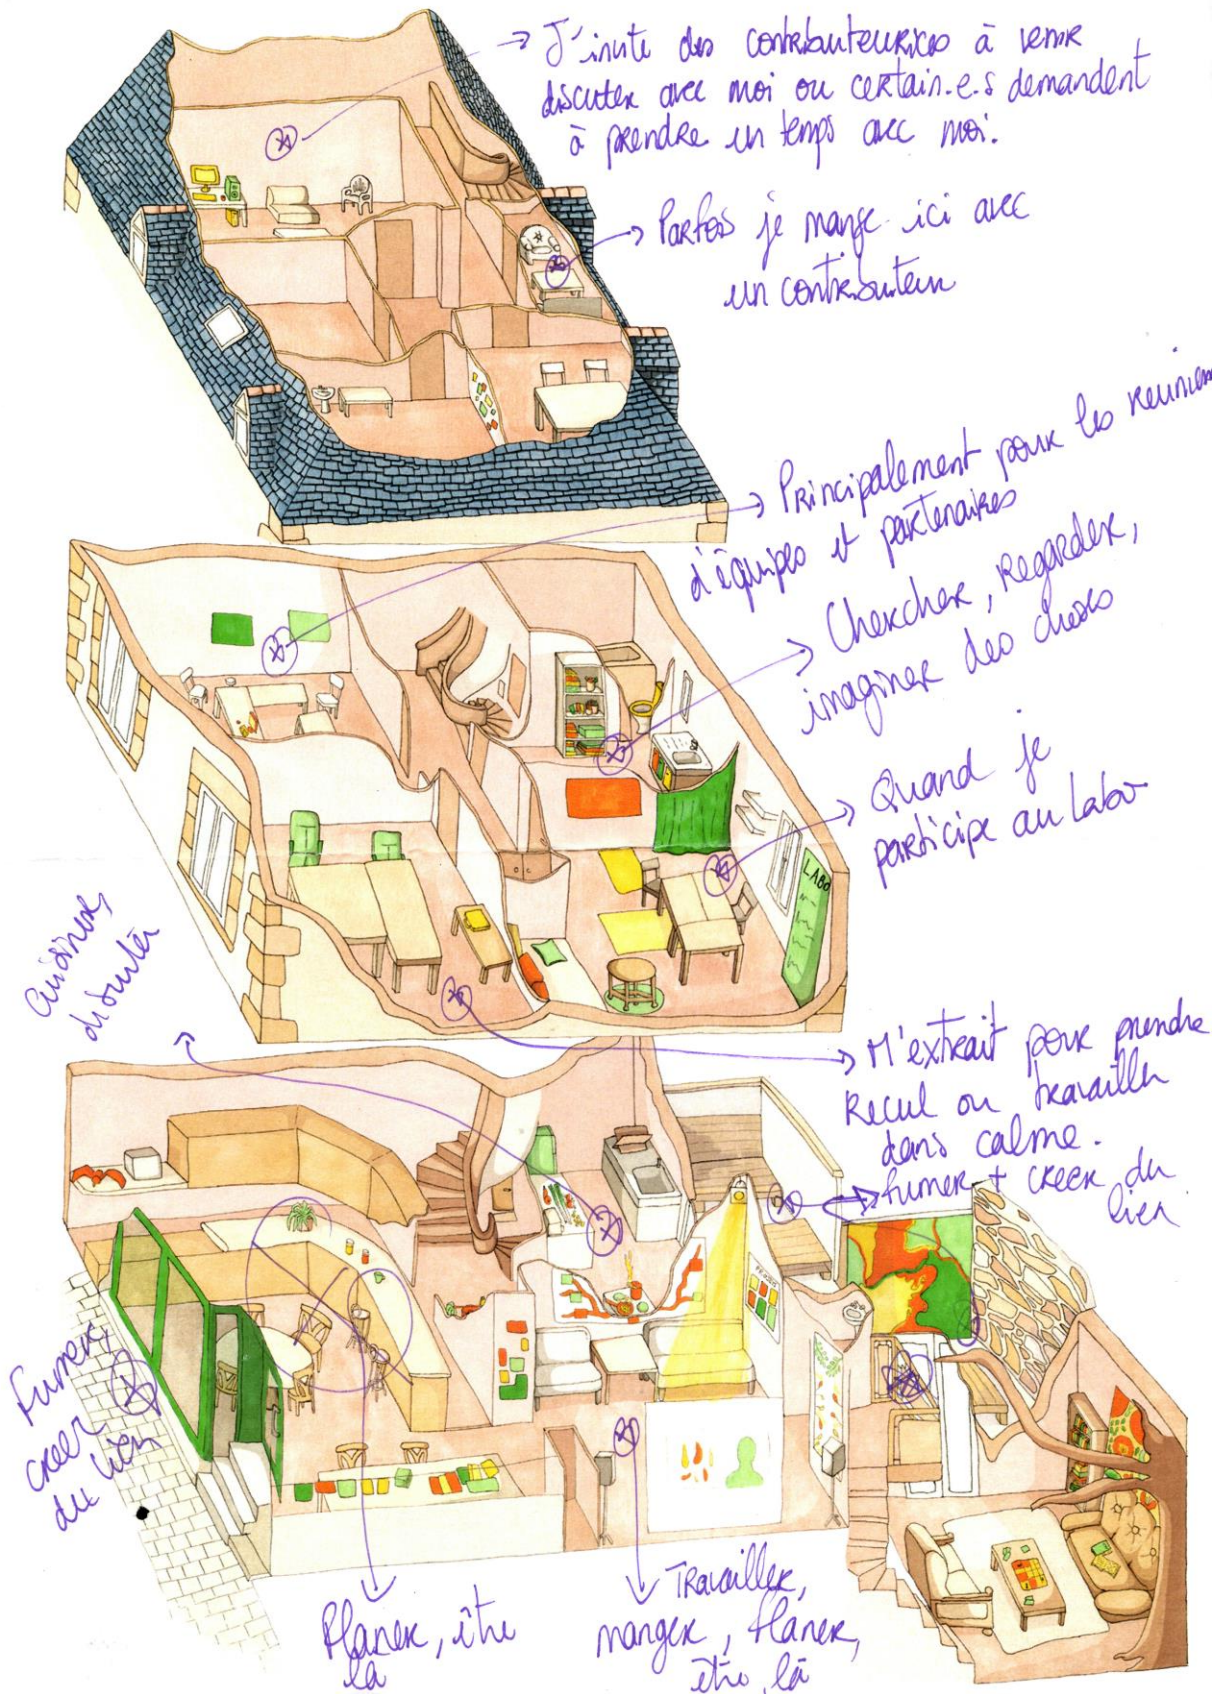 J'invite des contributeurices à venir
discuter avec moi ou certain.e.s demandent
à prendre un temps avec moi.
Parfois je mange ici avec
un contributeur
Principalement pour les reunions
d'équipes et partenaires
Chercher, Regarder,
imaginer des choses
Quand je
participe au Labo
LABO
cuisiner,
discuter
M'extrait pour prendre
Recul ou travailler
dans calme.
fumer + creer du
lien
Fumer,
creer
du lien
flaner, être
là
Travailler,
manger, flaner,
être là